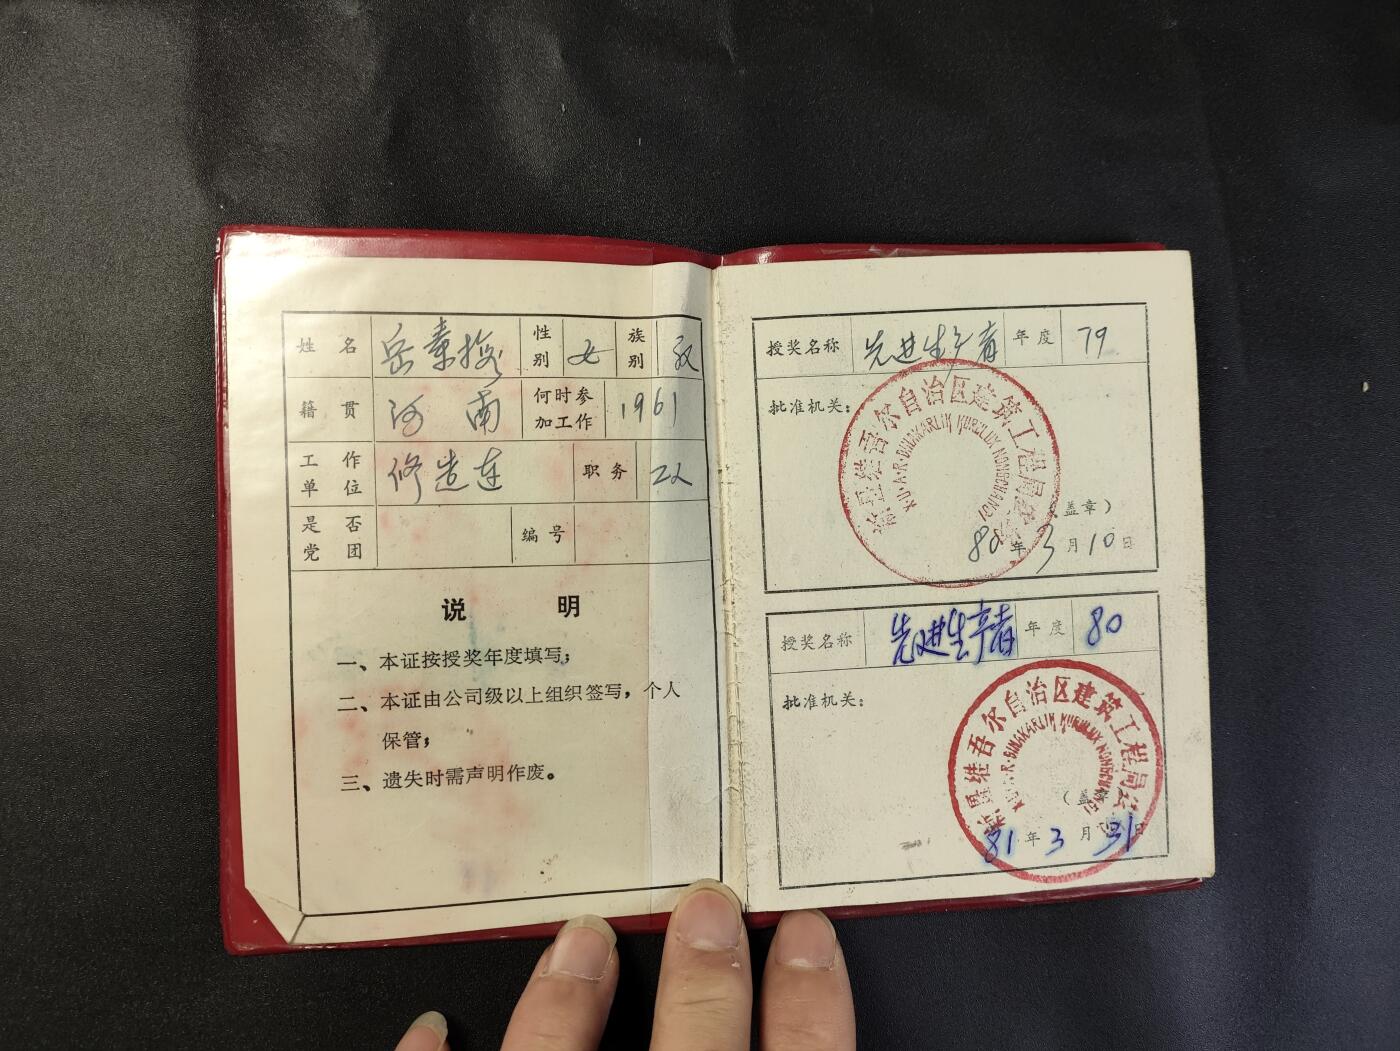 姓名 岳素梅 性别 女 族别 汉
籍贯 河南 何时参加工作 1961
工作单位 修造连 职务 工人
是否党团 编号
说 明
一、本证按授奖年度填写；
二、本证由公司级以上组织签写，个人
保管；
三、遗失时需声明作废。
授奖名称 先进生产者 年度 79
批准机关：
新疆维吾尔自治区建筑工程局
（盖章）
80年3月10日
授奖名称 先进生产者 年度 80
批准机关：
新疆维吾尔自治区建筑工程局
（盖章）
81年3月31日